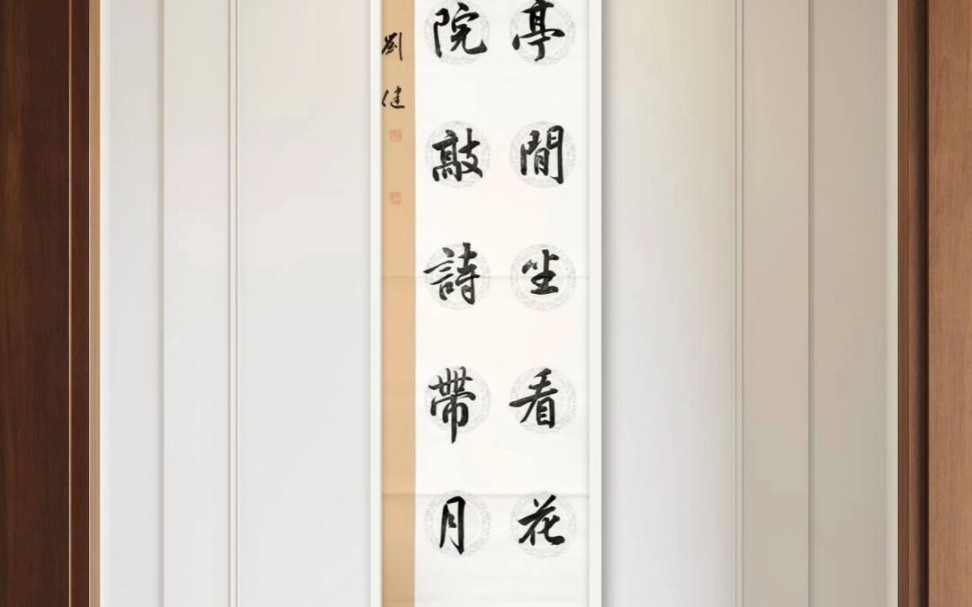 亭閒坐看花
院敲詩帶月
劉健